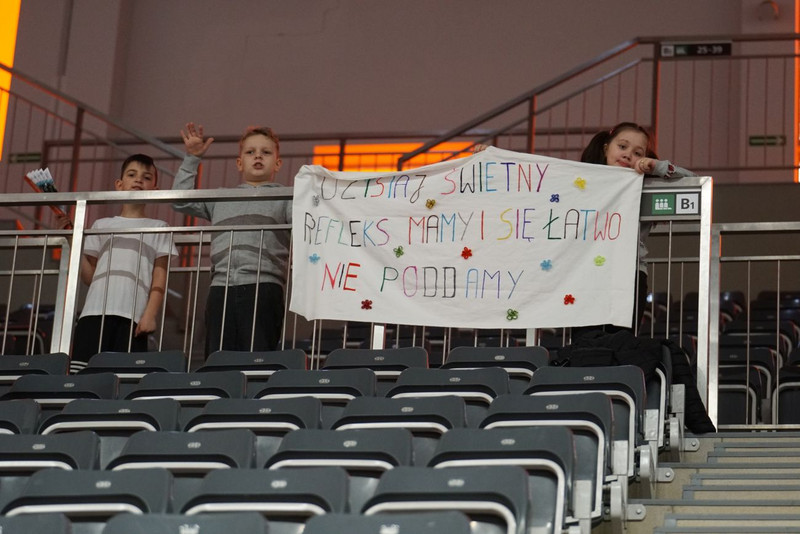 25-39
DZISIAJ ŚWIETNY
REFLEKS MAMY I SIĘ ŁATWO
NIE PODDAMY
B1